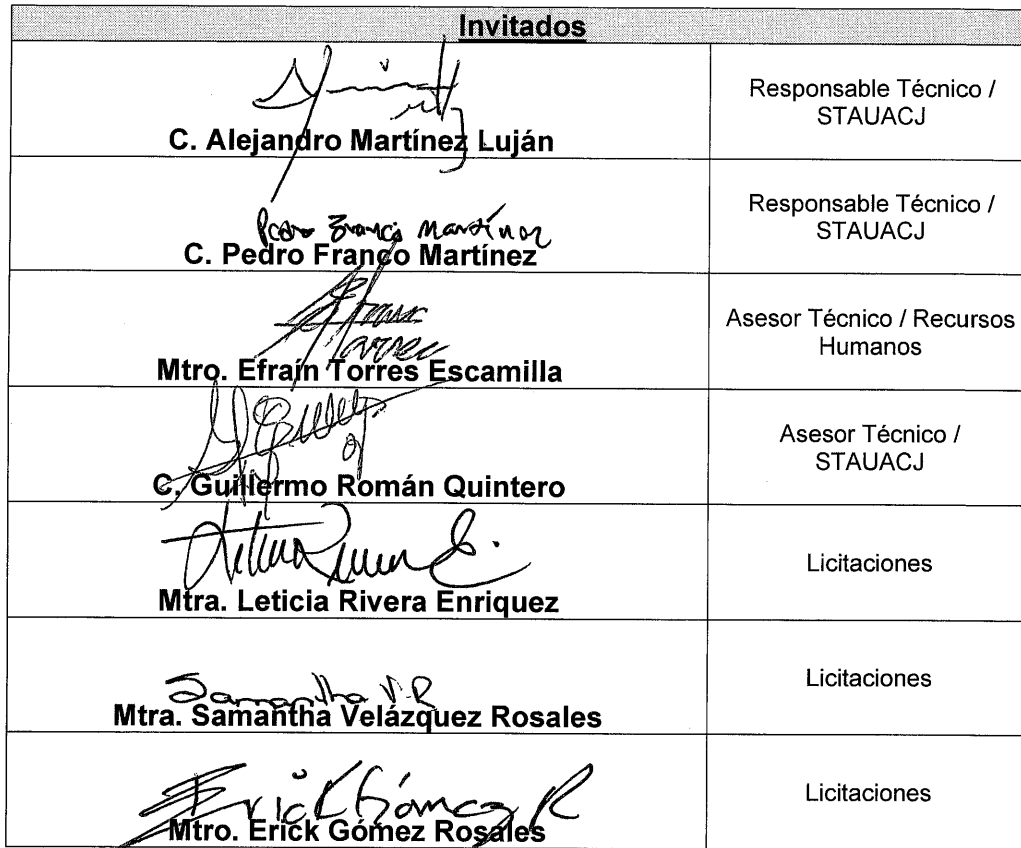 Invitados
C. Alejandro Martínez Luján
Responsable Técnico /
STAUACJ
Pedro Franco Martínez
C. Pedro Franco Martínez
Responsable Técnico /
STAUACJ
Mtro. Efraín Torres Escamilla
Asesor Técnico / Recursos
Humanos
C. Guillermo Román Quintero
Asesor Técnico /
STAUACJ
Mtra. Leticia Rivera Enriquez
Licitaciones
Samantha V.R
Mtra. Samantha Velázquez Rosales
Licitaciones
Erick Gómez R
Mtro. Erick Gómez Rosales
Licitaciones